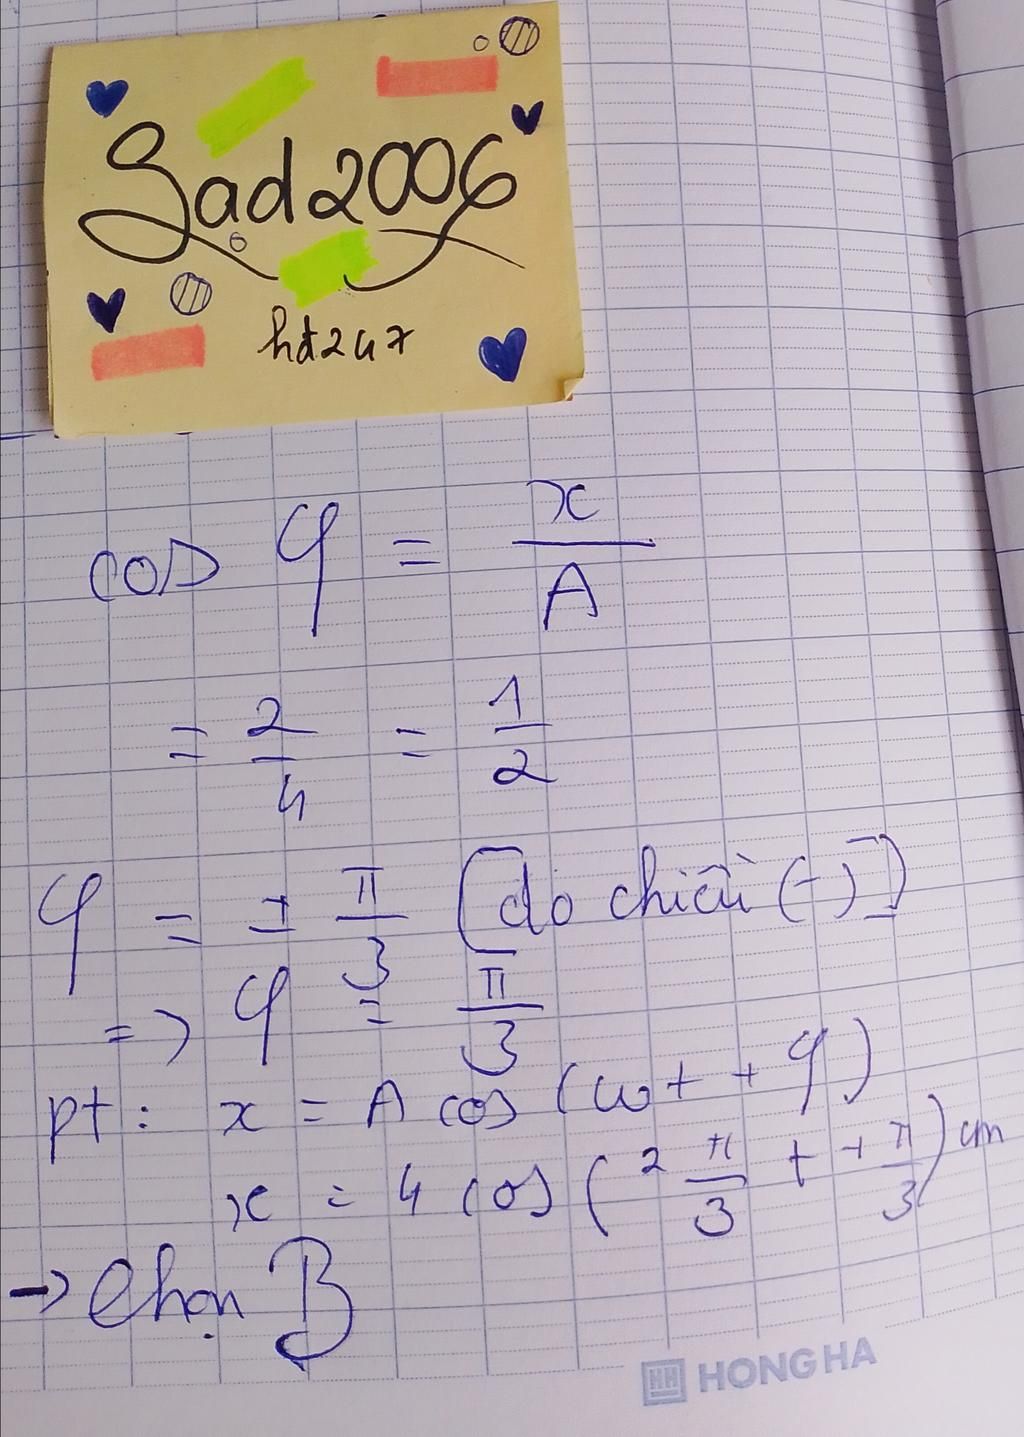 Sad2006
hđ247
cos φ = x/A
= 2/4 = 1/2
φ = ± π/3 [do chiều (-)]
=> φ = π/3
pt: x = A cos (ωt + φ)
x = 4 cos (2 π/3 t + π/3) cm
→ Chọn B
HONG HA